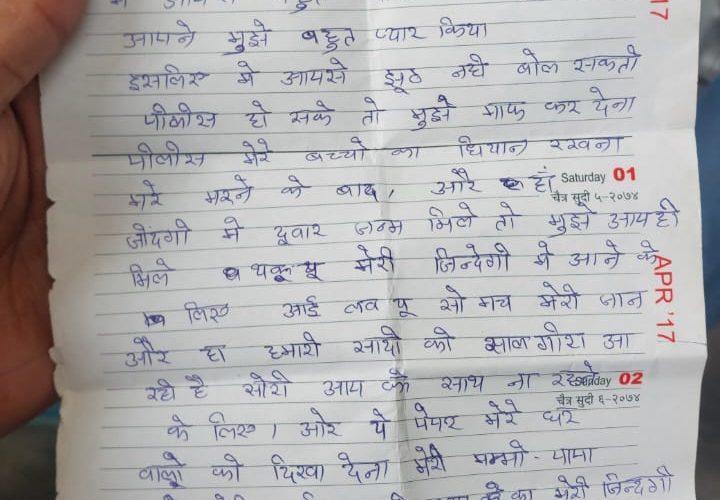 आपने मुझे बहुत प्यार किया
17
इसलिए मे आपसे झूठ नही बोल सकती
पीलीस हो सके तो मुझे माफ कर देना
पीलीस मेरे बच्चो का धियान रखना
मरे मरने के बाद, और हां
Saturday 01
चैत्र सुदी ५-२०७४
जींदगी मे दूवार जन्म मिले तो मुझे आप ही
मिले थकू यू मेरी जिन्देगी मे आने के
APR '17
लिए आई लव यू सो मच मेरी जान
और हा हमारी सादी की सालगीरा आ
रही है सोरी आप के साथ ना रहने
Sunday 02
चैत्र सुदी ६-२०७४
के लिए। और ये पेपर मेरे घर
वालो को दिखा देना मेरी मम्मी-पापा
मेरी जिन्दगी